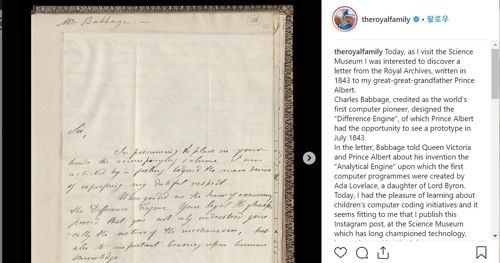 Mr Babbage.
Sir,
In presuming to place in your
hands the accompanying volume I am
actuated by a feeling beyond the mere desire
of expressing my dutiful respect.
When you did me the honor of examining
the Difference Engine Your Royal Highness
proved that you not only understood gene-
rally the nature of the mechanism, but
also its important bearing upon human
knowledge.
theroyalfamily • 팔로우
theroyalfamily Today, as I visit the Science
Museum I was interested to discover a
letter from the Royal Archives, written in
1843 to my great-great-grandfather Prince
Albert.
Charles Babbage, credited as the world's
first computer pioneer, designed the
"Difference Engine", of which Prince Albert
had the opportunity to see a prototype in
July 1843.
In the letter, Babbage told Queen Victoria
and Prince Albert about his invention the
"Analytical Engine" upon which the first
computer programmes were created by
Ada Lovelace, a daughter of Lord Byron.
Today, I had the pleasure of learning about
children's computer coding initiatives and it
seems fitting to me that I publish this
Instagram post, at the Science Museum
which has long championed technology,